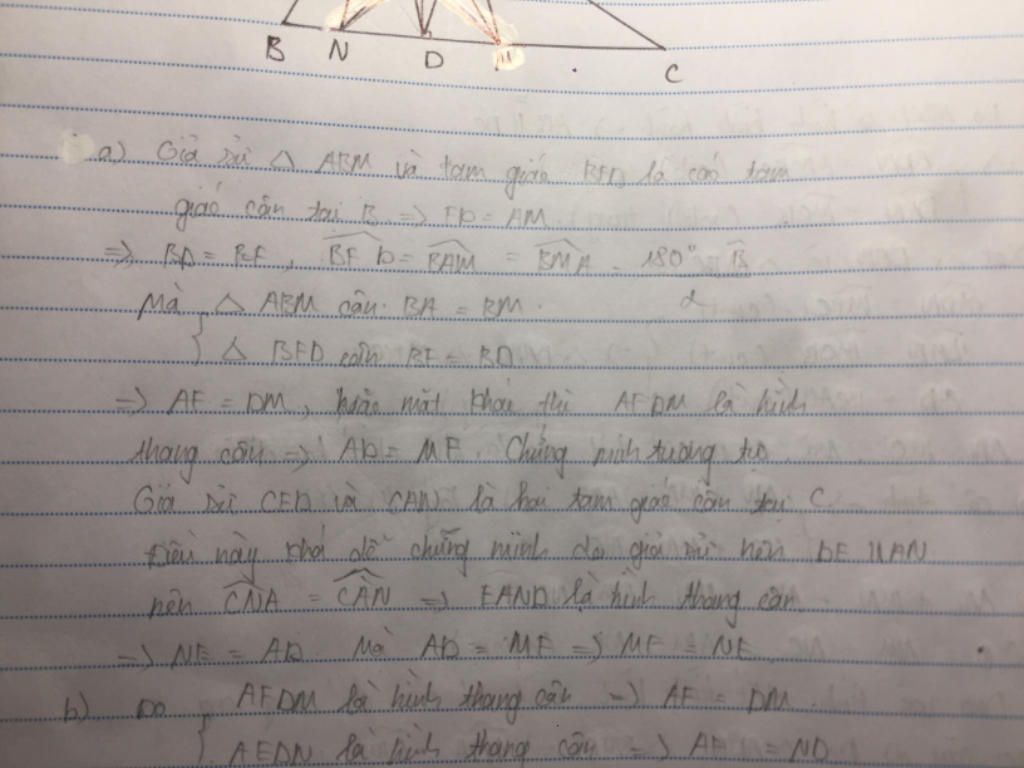 B N D M C
a) Giả sử △ ABM và tam giác BFD là các tam
giác cân tại B. => FD = AM.
=> BD = BF, BFD = BAM = BMA = 180° - B
2
Mà △ ABM cân. BA = BM.
△ BFD cân BF = BD
=> AF = DM, mặt khác thì AFDM là hình
thang cân => AD = MF. Chứng minh tương tự
Giả sử CED và CAN là hai tam giác cân tại C
Điều này khá dễ chứng minh do giả sử nên DE // AN
nên CNA = CAN => EAND là hình thang cân
=> NE = AD Mà AD = MF => MF = NE
b) Do AFDM là hình thang cân => AF = DM
AEDN là hình thang cân => AE = ND